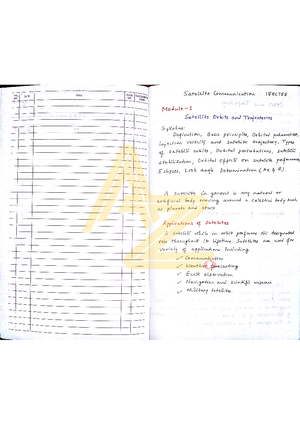 Satellite Communication 18EC755
Module-1
Satellite Orbits and Trajectories
Syllabus:
Definition, Basic principles, Orbital parameters,
Injection velocity and satellite trajectory, Types
of Satellite orbits, Orbital perturbations, Satellite
stabilization, Orbital effects on satellite performance,
Eclipses, Look angle Determination
A Satellite in general is any natural or
artificial body moving around a celestial body such
as planets and stars
Applications of Satellites
A Satellite while in orbit performs its designated
role throughout its lifetime. Satellites are used for
variety of applications including
✓ Communication
✓ Weather forecasting
✓ Earth observation
✓ Navigation and scientific missions
✓ Military Satellites.